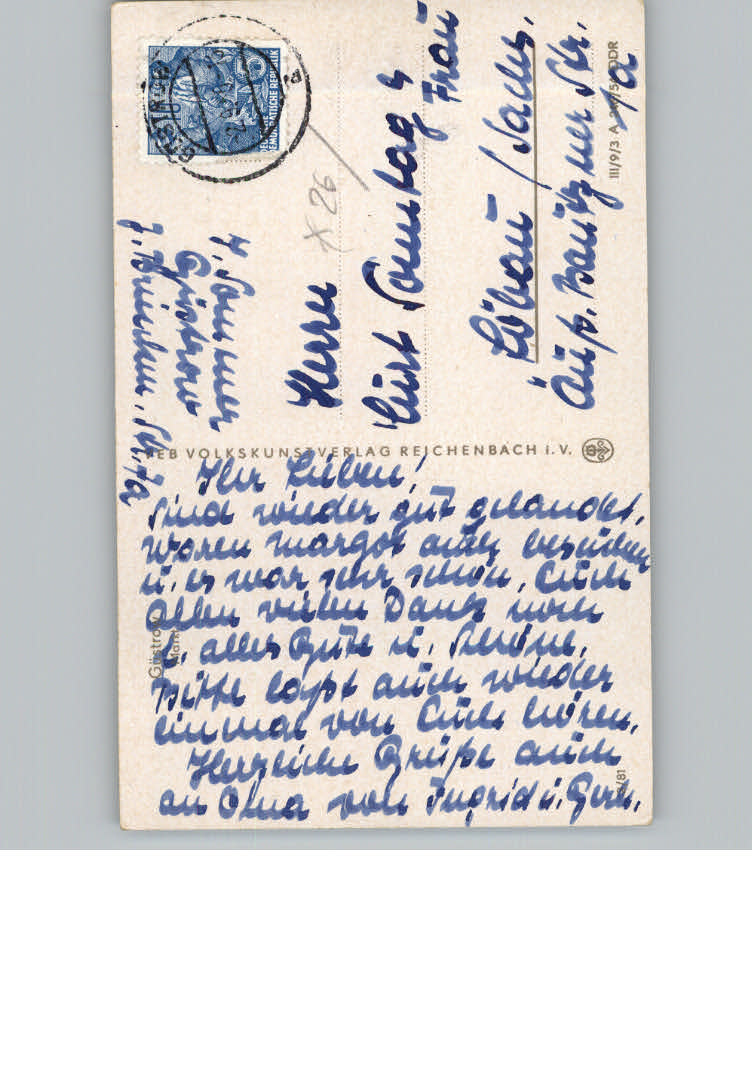 Ihr Lieben!
Sind wieder gut gelandet,
waren Margot auch besuchen
u. es war sehr schön, Euch
Allen vielen Dank noch
u. alles Gute u. Schöne.
Bitte laßt auch wieder
einmal von Euch hören.
Herzliche Grüße auch
an Oma von Ingrid u. Gerh.
Güstrow
Markt
VEB VOLKSKUNSTVERLAG REICHENBACH i. V.
J. Sommer
Güstrow
Str. 7a
DEMOKRATISCHE REPUBLIK
x 26
Herrn
Curt Sonntag u
Frau
Löbau / Sachs.
Äuß. Bautzner Str.
1a
III/9/3 A DDR